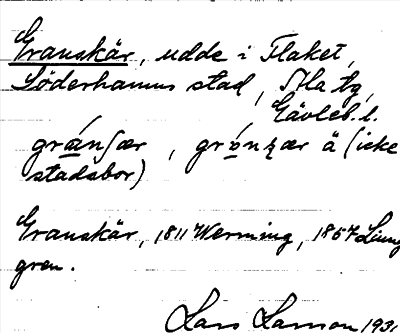 Granskär, udde i Flaket,
Söderhamns stad, Ala tg,
Gävleb. l.
gránʃær, grónʓær ä (icke
stadsbor)
Granskär, 1811 Werming, 1857 Ljung
gren.
Lars Larson 193